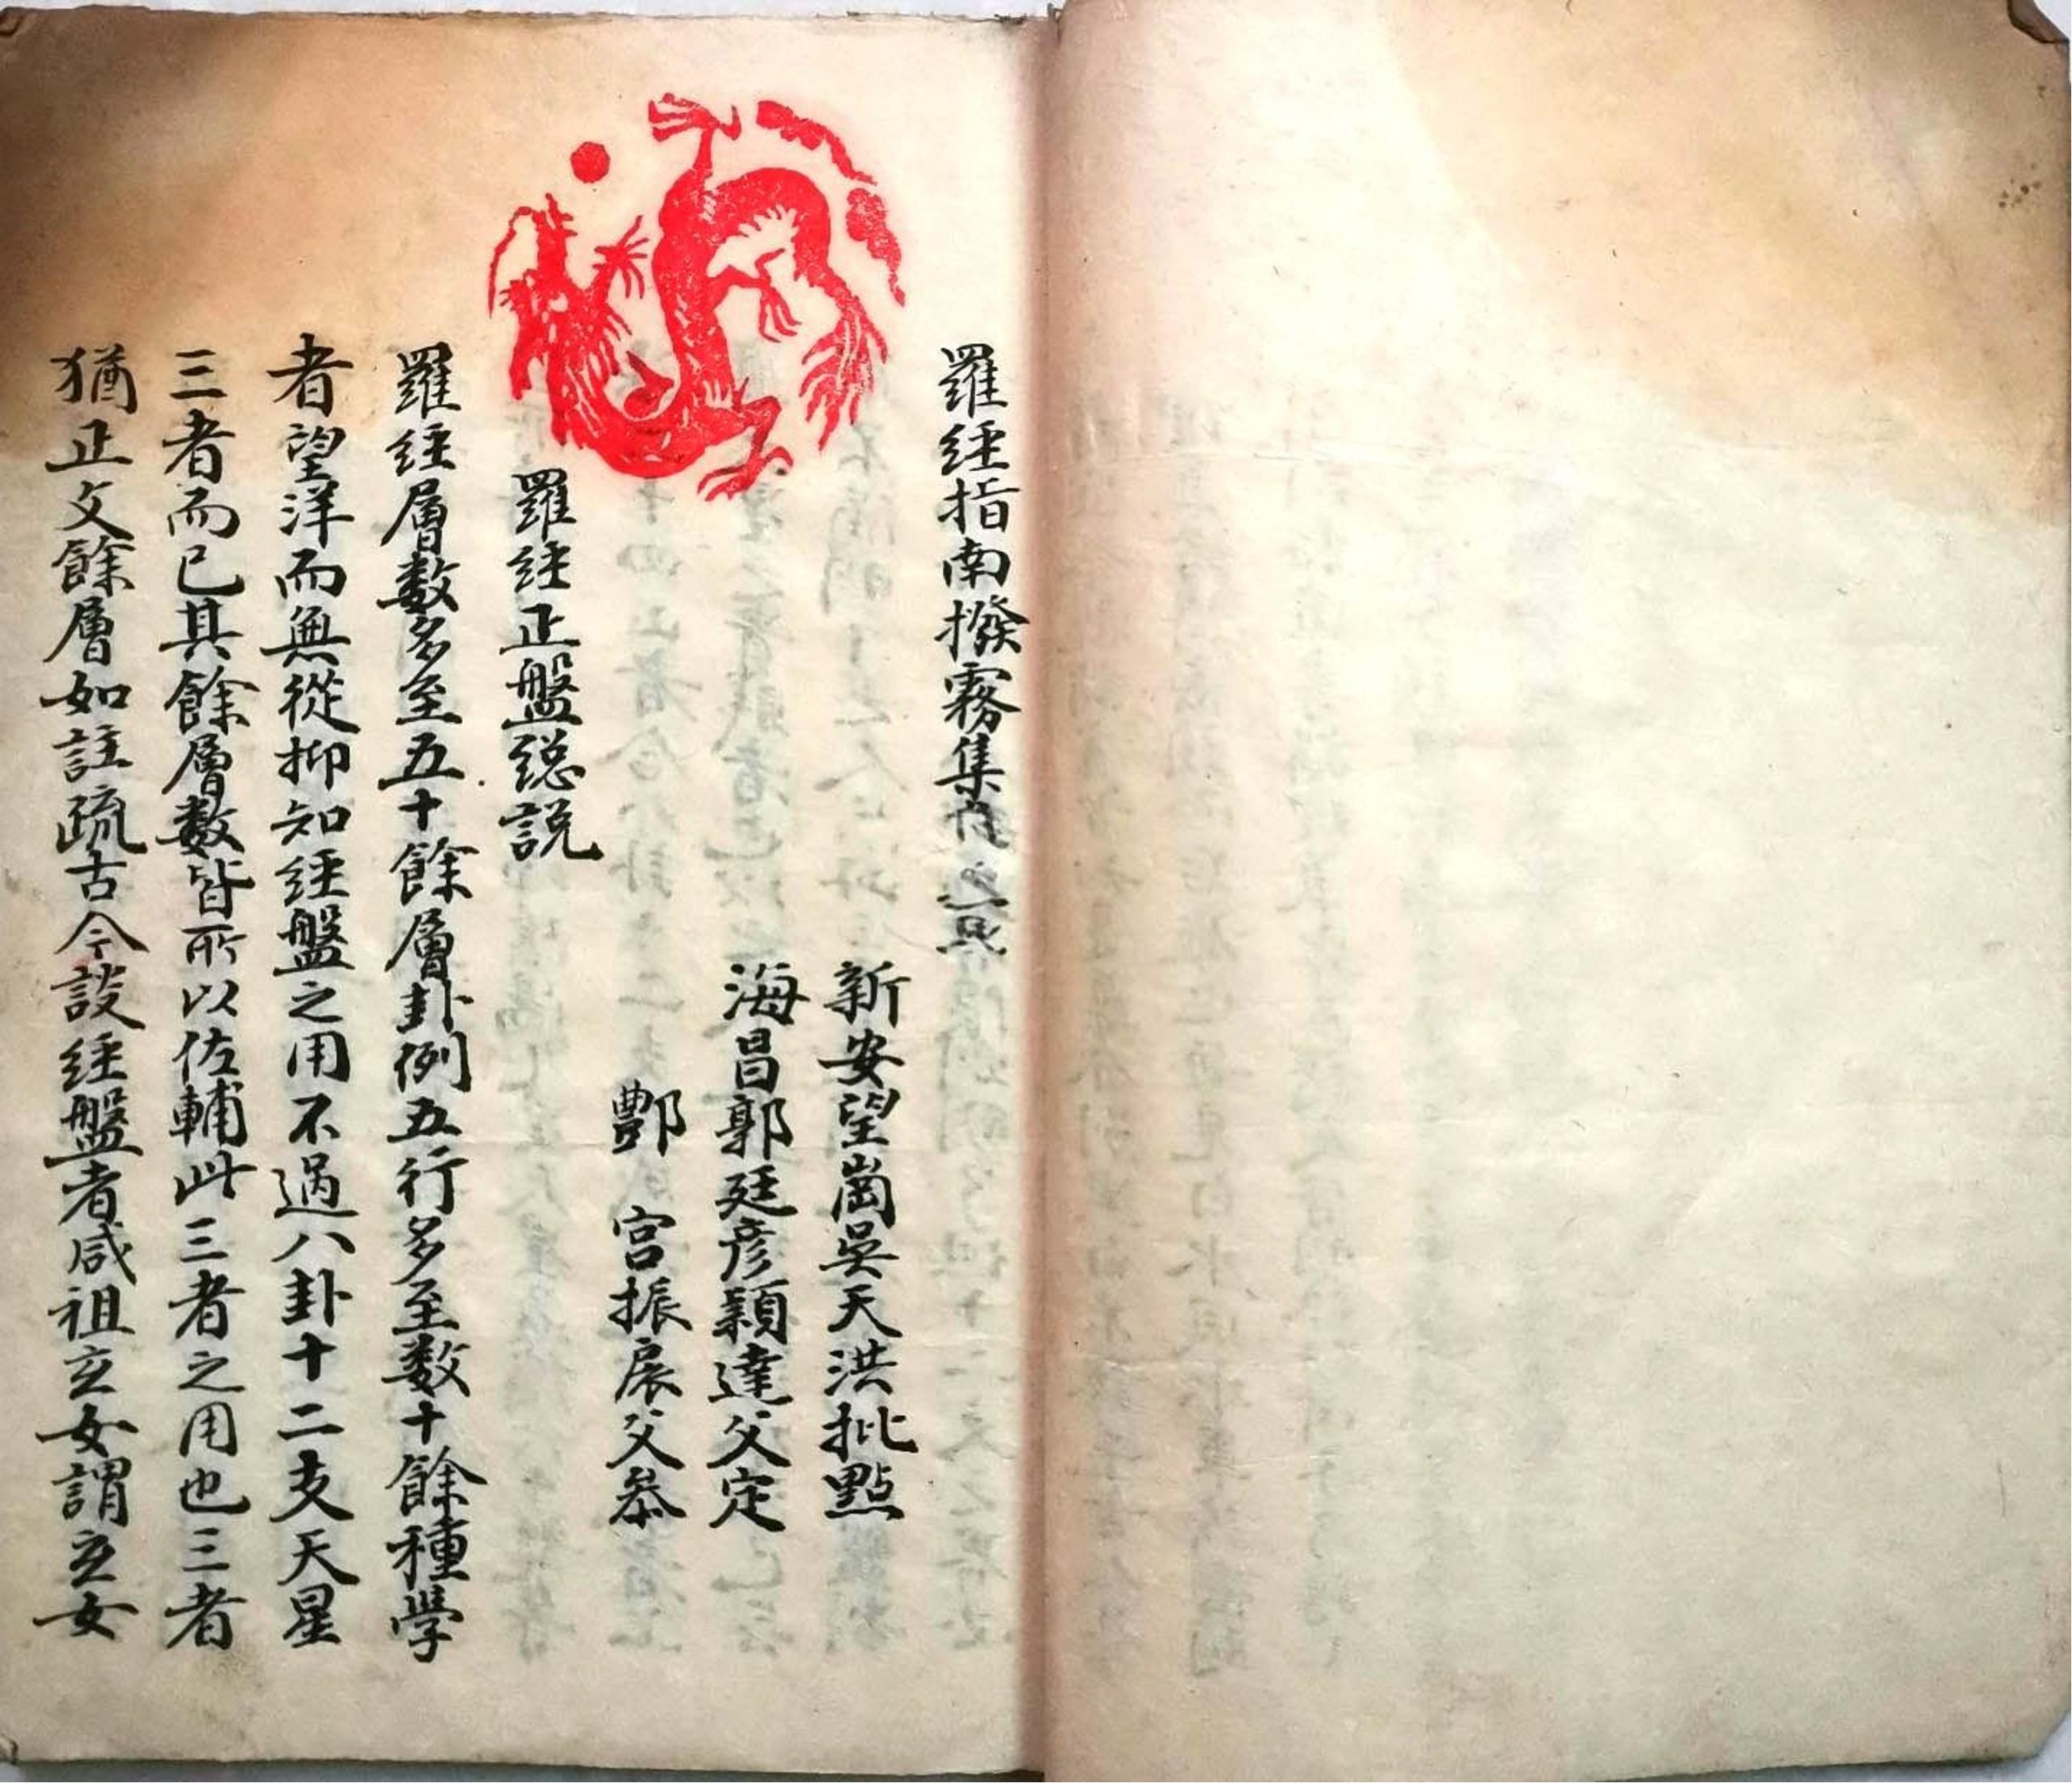 羅經指南撥霧集
新安望崗吳天洪批點
海昌郭廷彥穎達父定
酆宮振宸父叅
羅經正盤總説
羅經層數多至五十餘層卦例五行多至数十餘種學
者望洋而無從抑知經盤之用不過八卦十二支天星
三者而已其餘層數皆所以佐輔此三者之用也三者
猶正文餘層如註疏古今談經盤者咸祖玄女謂玄女